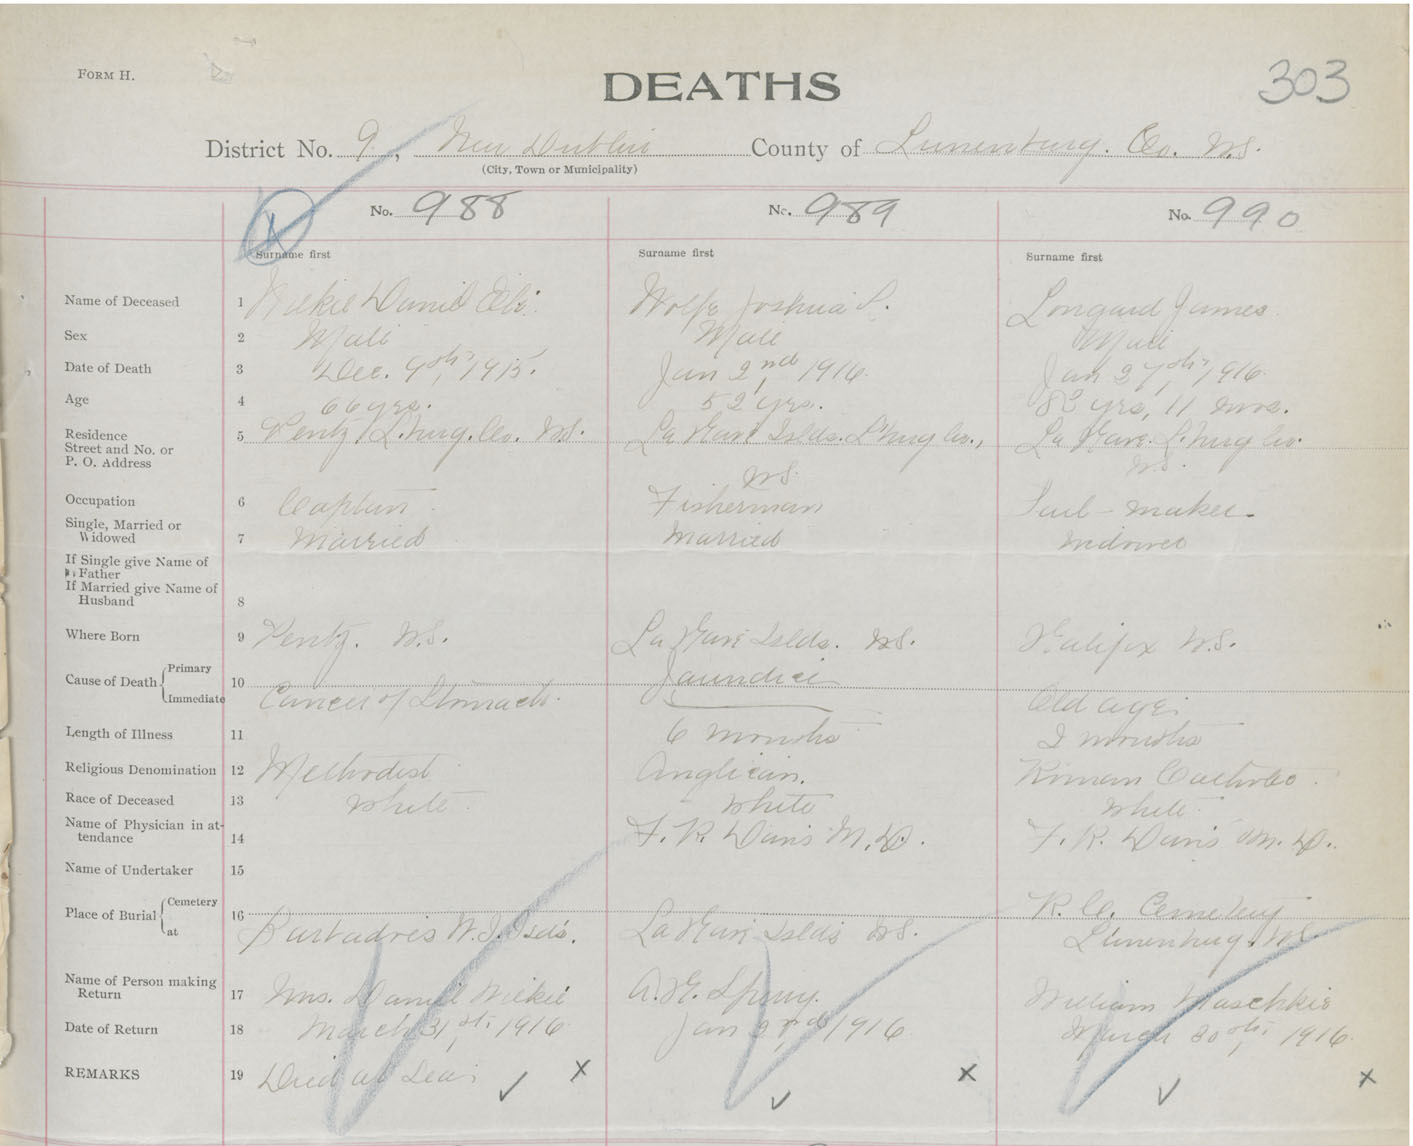 FORM H.
DEATHS
303
District No. 9, New Dublin County of Lunenburg. Co. N.S.
(City, Town or Municipality)
No. 988 No. 989 No. 990
Surname first Surname first Surname first
Name of Deceased 1 Wilkie Daniel Wolfe Joshua Longard James
Sex 2 Male Male Male
Date of Death 3 Dec. 9th, 1915. Jan 2nd, 1916. Jan 27th, 1916.
Age 4 66 yrs. 52 yrs. 82 yrs, 11 mos.
Residence 5 Pentz L.burg. Co. N.S. La Have Islds. L'burg Co., La Have. L.burg Co.
Street and No. or
P. O. Address N.S. N.S.
Occupation 6 Captain Fisherman Sail-maker.
Single, Married or
Widowed 7 Married Married Widower
If Single give Name of
Father
If Married give Name of
Husband 8
Where Born 9 Pentz. N.S. La Have Islds. N.S. Halifax N.S.
Cause of Death Primary 10 Jaundice
Immediate Cancer of Stomach. Old age.
Length of Illness 11 6 months 2 months
Religious Denomination 12 Methodist Anglican. Roman Catholic
Race of Deceased 13 White White White
Name of Physician in at-
tendance 14 F. R. Davis M.D. F. R. Davis M.D.
Name of Undertaker 15
Place of Burial Cemetery 16 R. C. Cemetery
at Barbadoes W.I. Isds. La Have Islds N.S. Lunenburg. N.S.
Name of Person making
Return 17 Mrs. Daniel Wilkie A. E. William
Date of Return 18 March 31st, 1916 Jan 2nd, 1916 March 30th, 1916.
REMARKS 19 Died at Sea. ✓ X ✓ X ✓ X